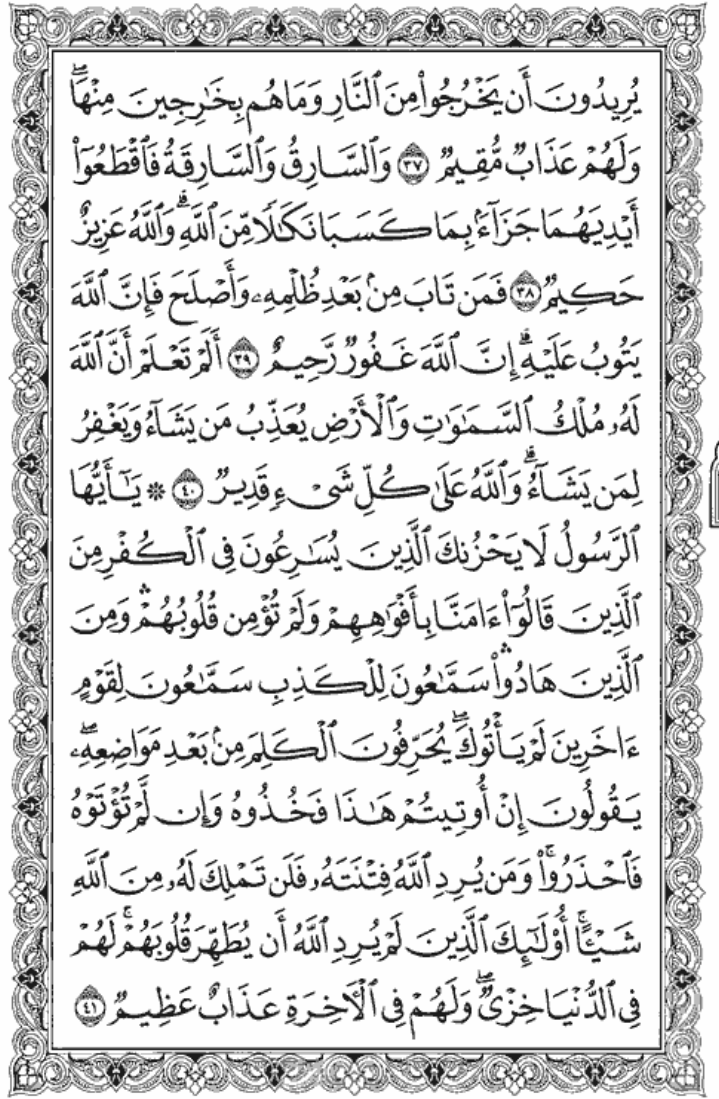 يُرِيدُونَ أَن يَخْرُجُوا۟ مِنَ ٱلنَّارِ وَمَا هُم بِخَٰرِجِينَ مِنْهَاۖ
وَلَهُمْ عَذَابٌ مُّقِيمٌ ٣٧ وَٱلسَّارِقُ وَٱلسَّارِقَةُ فَٱقْطَعُوٓا۟
أَيْدِيَهُمَا جَزَآءَۢ بِمَا كَسَبَا نَكَٰلًا مِّنَ ٱللَّهِۗ وَٱللَّهُ عَزِيزٌ
حَكِيمٌ ٣٨ فَمَن تَابَ مِنۢ بَعْدِ ظُلْمِهِۦ وَأَصْلَحَ فَإِنَّ ٱللَّهَ
يَتُوبُ عَلَيْهِۗ إِنَّ ٱللَّهَ غَفُورٌ رَّحِيمٌ ٣٩ أَلَمْ تَعْلَمْ أَنَّ ٱللَّهَ
لَهُۥ مُلْكُ ٱلسَّمَٰوَٰتِ وَٱلْأَرْضِ يُعَذِّبُ مَن يَشَآءُ وَيَغْفِرُ
لِمَن يَشَآءُۗ وَٱللَّهُ عَلَىٰ كُلِّ شَىْءٍ قَدِيرٌ ٤٠ ۞ يَٰٓأَيُّهَا
ٱلرَّسُولُ لَا يَحْزُنكَ ٱلَّذِينَ يُسَٰرِعُونَ فِى ٱلْكُفْرِ مِنَ
ٱلَّذِينَ قَالُوٓا۟ ءَامَنَّا بِأَفْوَٰهِهِمْ وَلَمْ تُؤْمِن قُلُوبُهُمْۛ وَمِنَ
ٱلَّذِينَ هَادُوا۟ۛ سَمَّٰعُونَ لِلْكَذِبِ سَمَّٰعُونَ لِقَوْمٍ
ءَاخَرِينَ لَمْ يَأْتُوكَۖ يُحَرِّفُونَ ٱلْكَلِمَ مِنۢ بَعْدِ مَوَاضِعِهِۦۖ
يَقُولُونَ إِنْ أُوتِيتُمْ هَٰذَا فَخُذُوهُ وَإِن لَّمْ تُؤْتَوْهُ
فَٱحْذَرُوا۟ۚ وَمَن يُرِدِ ٱللَّهُ فِتْنَتَهُۥ فَلَن تَمْلِكَ لَهُۥ مِنَ ٱللَّهِ
شَيْـًٔاۚ أُو۟لَٰٓئِكَ ٱلَّذِينَ لَمْ يُرِدِ ٱللَّهُ أَن يُطَهِّرَ قُلُوبَهُمْۚ لَهُمْ
فِى ٱلدُّنْيَا خِزْىٌۖ وَلَهُمْ فِى ٱلْءَاخِرَةِ عَذَابٌ عَظِيمٌ ٤١